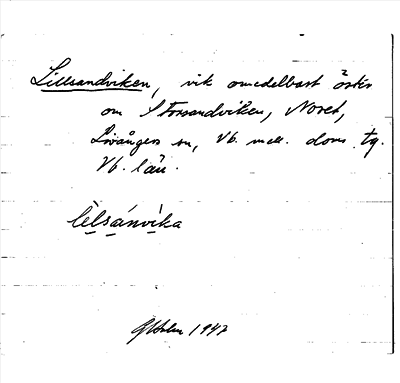 Lillsandviken, vik omedelbart öster
om Storsandviken, Noret,
Lövångers sn, Vb. mell. doms. tg.
Vb. län.
lèlsánvìka
GHolm 1947